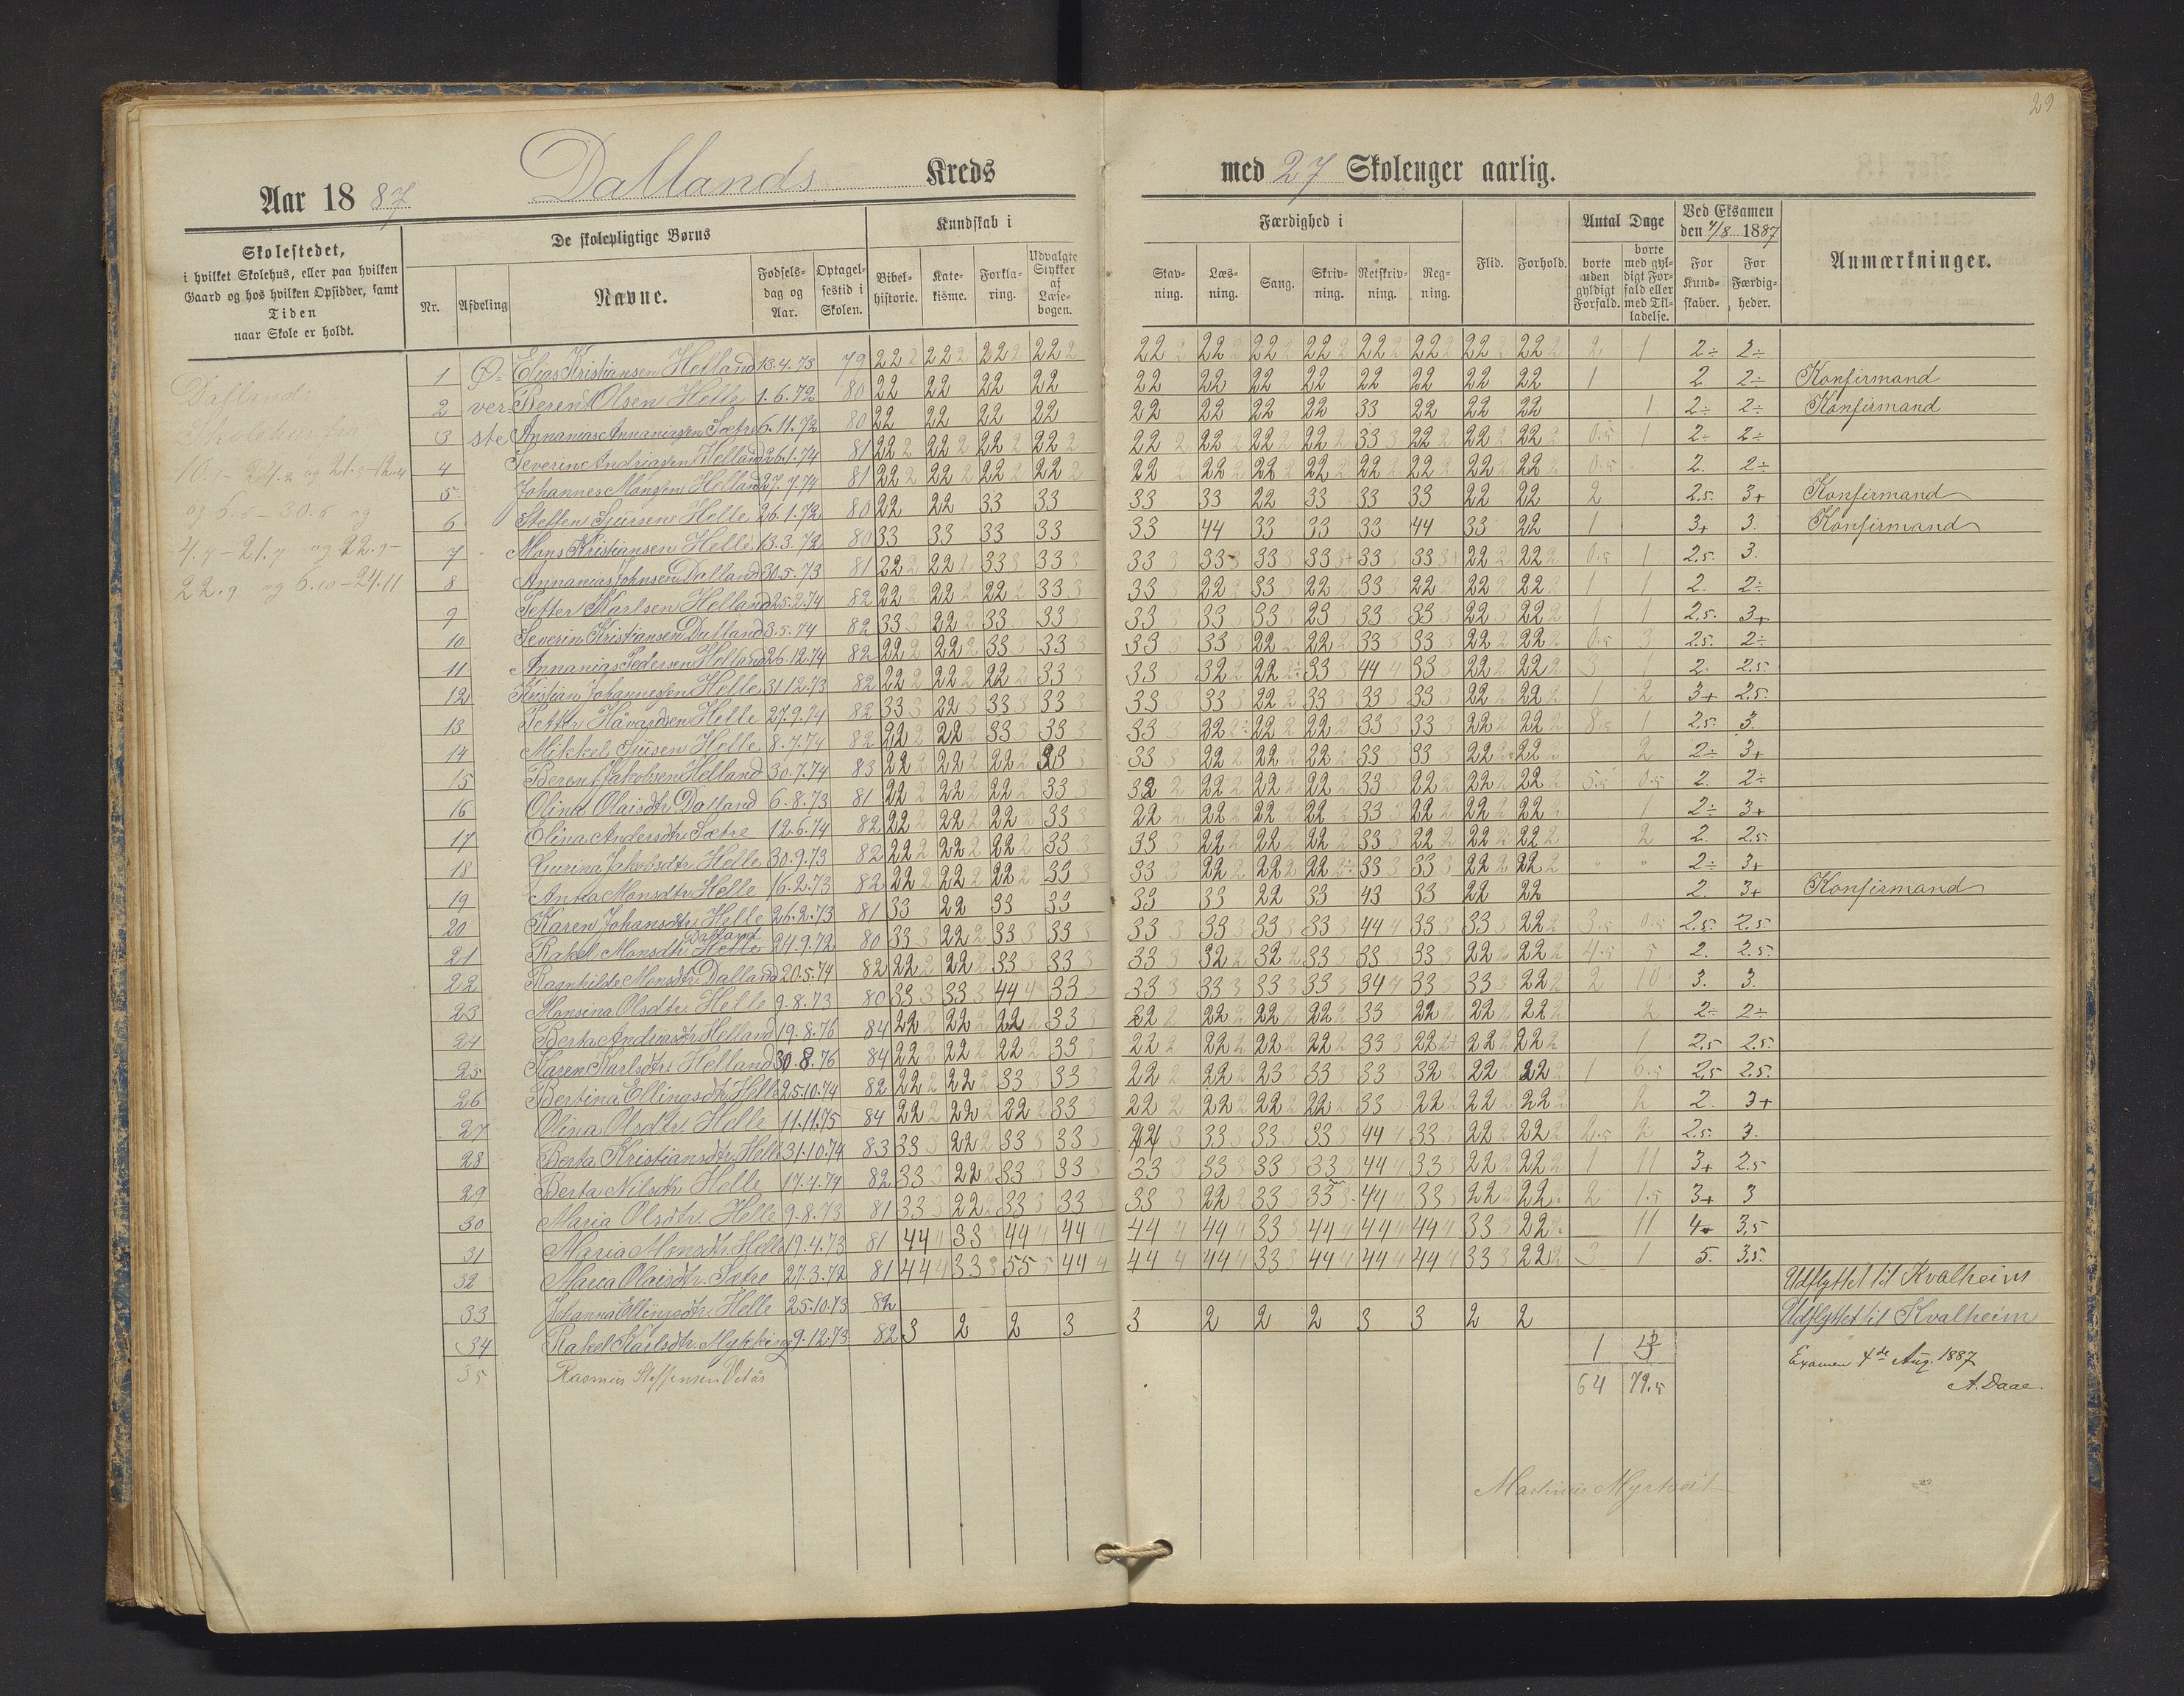 29
Aar 1887
Dallands Kreds
med 27 Skolenger aarlig.
Skolestedet,
i hvilket Skolehus, eller paa hvilken
Gaard og hos hvilken Opsidder, samt
Tiden
naar Skole er holdt.
De skolepligtige Børns
Nr. Afdeling Navne. Fødsels-dag og Aar. Optagel-sestid i Skolen.
Kundskab i
Bibel-historie. Kate-kisme. Forkla-ring. Udvalgte Stykker af Læse-bogen.
Færdighed i
Stav-ning. Læs-ning. Sang. Skriv-ning. Retskriv-ning. Reg-ning.
Flid. Forhold.
Antal Dage
borte uden gyldigt Forfald. borte med gyl-digt For-fald eller med Til-ladelse.
Ved Eksamen
den 4/8 1887
For Kund-skaber. For Færdig-heder.
Anmærkninger.
Dallands
Skolehus fra
10.1 - 24.2 og 21.3-12.4
og 5.5 - 30.6 og
4.7 - 21.7 og 22.9 -
22.9 og 6.10 - 24.11
1 Ø- Elias Kristiansen Helland 13.4.73 79 222 222 222 222 222 222 222 222 222 222 222 222 2 1 2÷ 2÷
2 ver- Berent Olsen Helle 1.6.72 80 22 22 22 22 22 22 22 22 22 22 22 22 1 2 2÷ Konfirmand
3 ste Annanias Annaniasen Sætre 6.11.72 80 22 22 22 22 22 22 22 22 33 22 22 22 1 2÷ 2÷ Konfirmand
4 Severin Andriasen Helland 26.1.74 81 222 222 222 222 222 222 222 222 333 222 222 222 0.5 1 2÷ 2÷
5 Johannes Monsen Helland 27.7.74 81 222 222 222 222 222 222 222 222 222 222 222 222 0.5 2. 2÷
6 Steffen Sjursen Helle 26.1.72 80 22 22 33 33 33 33 22 33 33 33 22 22 2 2.5. 3+ Konfirmand
7 Mons Kristiansen Helle 13.3.72 80 33 33 33 33 33 44 33 33 33 44 33 22 1 3+ 3. Konfirmand
8 Annanias Johnsen Dalland 30.5.73 81 222 222 333 333 333 333 333 333+ 333 333+ 222 222 0.5 1 2.5. 3.
9 Petter Karlsen Helland 25.2.74 82 222 222 222 333 333 222 333 222 333 222 222 222 1 1 2. 2÷
10 Severin Kristiansen Dalland 3.5.74 82 333 222 333 333 333 333 333 233 333 333 223 222 1 1 2.5. 3+
11 Annanias Pedersen Helland 26.12.74 82 222 222 333 333 333 333 222 222 333 333 222 222 0.5 3 2.5. 2÷
12 Kristian Johannesen Helle 31.12.73 82 222 222 222 333 333 322 222÷ 333 444 333 222 222 3 1 2. 2.5.
13 Petter Håvardsen Helle 27.9.74 82 333 223 333 333 333 333 222 333 333 333 222 222 1 2 3+ 2.5.
14 Mikkel Sjusen Helle 8.7.74 82 222 222 333 333 333 222÷ 222 222 333 333 222 222 8.5 1 2.5. 3
15 Berent Jakobsen Helland 30.7.74 83 222 222 222 333 333 222 222 222 333 333 222 222 2 2÷ 3+
16 Olina Olaisdtr. Dalland 6.8.73 81 222 222 222 333 322 222 222 222 333 222 222 222 5.5 0.5 2. 2÷
17 Elina Andersdtr. Sætre 12.6.74 82 222 222 222 333 222 222 222 222 333 222 222 222 1 2÷ 3+
18 Gurina Jakobsdtr. Helle 30.9.73 82 222 222 222 333 333 222 222 222 333 222 222 222 2 2. 2.5.
19 Anna Monsdtr. Helle 16.2.73 82 222 222 222 333 333 222 222 222÷ 333 333 222 222 " " 2÷ 3+
20 Karen Johansdtr. Helle 26.2.73 81 33 22 33 33 33 33 22 33 43 33 22 22 2. 3+ Konfirmand
21 Rakel Monsdtr. Helle Dalland 24.9.72 80 333 222 333 333 333 333 333 333 444 333 333 222 3.5 0.5 2.5. 2.5.
22 Ragnhilde Monsdtr. Dalland 20.5.74 82 222 222 333 333 333 322 322 333 333 333 222 222 4.5 5 2. 2.5.
23 Monsina Olsdtr. Helle 9.8.73 80 333 333 444 333 333 333 333 333 344 333 333 222 2 10 3. 3.
24 Berta Andriasdtr. Helland 19.8.76 84 222 222 222 333 222 222 222 222 333 222 222 222 2 2÷ 2÷
25 Karen Karlsdtr. Helland 30.8.76 84 222 222 222 333 222 222 222 222 333 222+ 222 222 1 2.5 2.5.
26 Bertina Ellingsdtr. Helle 25.10.74 82 222 222 333 333 222 222 233 333 333 322 222 222 1 6.5 2.5 2.5.
27 Olina Olsdtr. Helle 11.11.75 84 222 222 222 333 222 222 222 222 333 222 222 222 2 2. 3+
28 Berta Kristiansdtr. Helle 31.10.74 83 333 222 333 333 443 333 333 333 444 333 222 222 2.5 2 2.5. 3.
29 Berta Nilsdtr. Helle 17.4.74 82 333 222 333 333 333 333 333 333 444 333 222 222 1 11 3+ 2.5
30 Maria Olsdtr. Helle 9.8.73 81 333 222 333 333 333 222 333 333 444 333 222 222 2 1.5 3+ 3
31 Maria Monsdtr. Helle 19.4.73 81 444 333 444 444 444 444 333 444 444 444 333 222 11 4 3.5
32 Maria Olaisdtr. Sætre 27.3.72 81 444 333 555 444 444 444 333 444 444 444 333 222 3 1 5. 3.5.
33 Johanna Ellingsdtr. Helle 25.10.73 82 Udflyttet til Kvalheim
34 Rakel Karlsdtr. Myking 9.12.73 82 3 2 2 3 3 2 2 2 3 3 2 2 Udflyttet til Kvalheim
35 Rasmus Steffensen Vetås 1
64 79.5
Examen 4de Aug. 1887
A. Daae.
Martinus Myrtveit